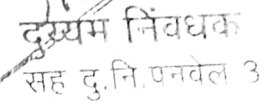 दुय्यम निंवधक
सह दु.नि.पनवेल ३